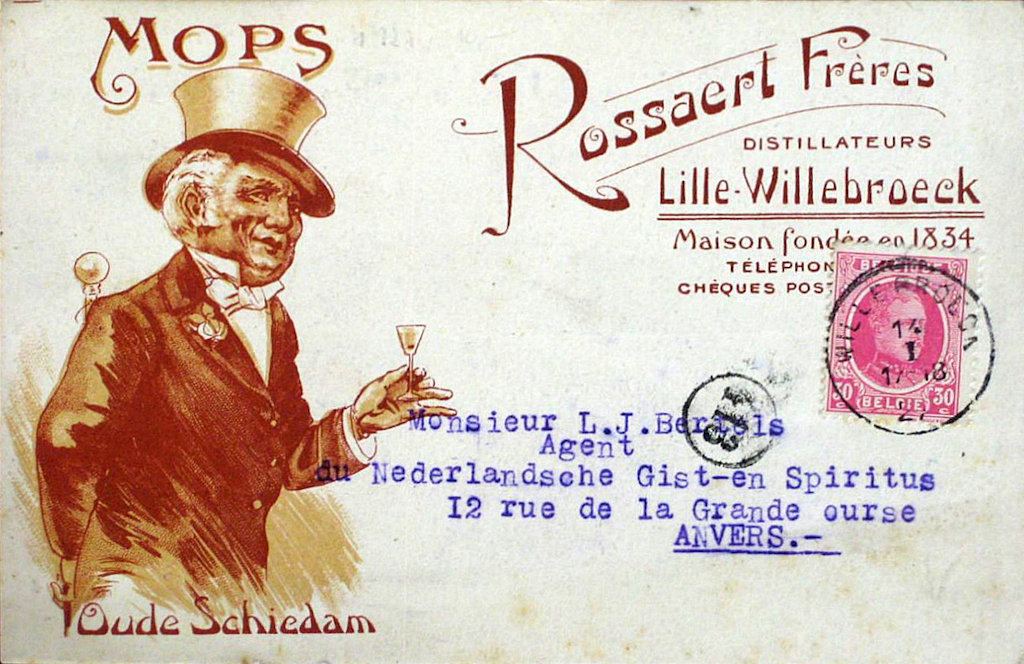 MOPS
Rossaert Frères
DISTILLATEURS
Lille-Willebroeck
Maison fondée en 1834
TÉLÉPHON
CHÈQUES POST
BELGIE
30 30
WILLEBROECK
14
I
17-18
27
Monsieur L.J.Bertels
Agent
du Nederlandsche Gist-en Spiritus
12 rue de la Grande ourse
ANVERS.-
Oude Schiedam